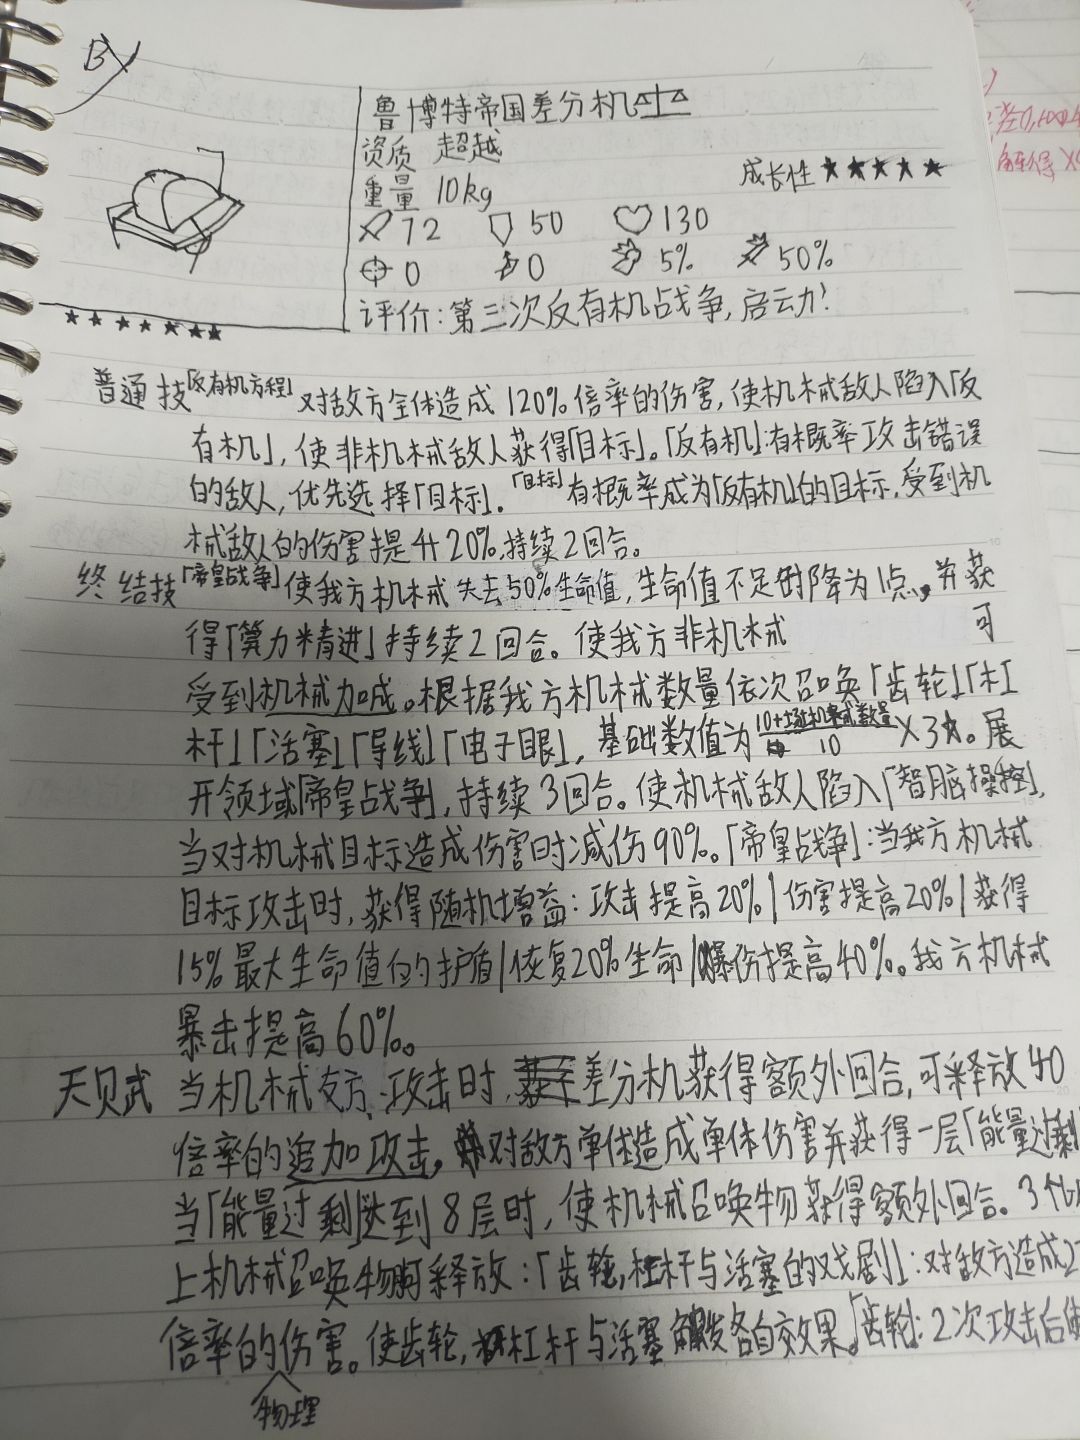 By
鲁博特帝国差分机
资质 超越
重量 10kg
成长性 ★★★★★
72 50 130
0 0 5% 50%
评价:第三次反有机战争,启动!
★★★★★★★
普通技「反有机方程」对敌方全体造成120%倍率的伤害,使机械敌人陷入「反
有机」,使非机械敌人获得「目标」。「反有机」:有概率攻击错误
的敌人,优先选择「目标」.「目标」有概率成为「反有机」的目标,受到机
械敌人的伤害提升20%.持续2回合。
终结技「帝皇战争」使我方机械失去50%生命值,生命值不足时降为1点,并获
得「算力精进」持续2回合。使我方非机械 可
受到机械加成。根据我方机械数量依次召唤「齿轮」「杠
杆」「活塞」「导线」「电子眼」,基础数值为 10+场机械数量 10 ×3。展
开领域「帝皇战争」,持续3回合。使机械敌人陷入「智脑操控」,
当对机械目标造成伤害时减伤90%。「帝皇战争」:当我方机械
目标攻击时,获得随机增益:攻击提高20%|伤害提高20%|获得
15%最大生命值的护盾|恢复20%生命|爆伤提高40%。我方机械
暴击提高60%。
天赋 当机械友方攻击时,差分机获得额外回合,可释放40
倍率的追加攻击,对敌方单体造成单体伤害并获得一层「能量过剩
当「能量过剩」达到8层时,使机械召唤物获得额外回合。3个以
上机械召唤物时可释放:「齿轮,杠杆与活塞的戏剧」:对敌方造成2
倍率的伤害。使齿轮,杠杆与活塞触发各自效果。「齿轮」:2次攻击后使
物理